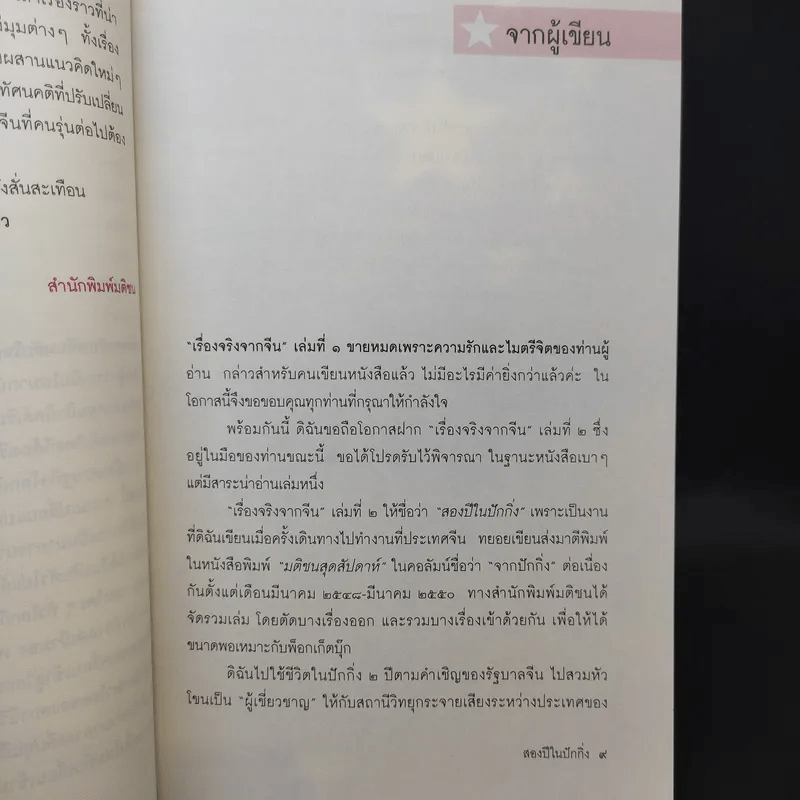 เรื่องราวที่น่า
มุมต่างๆ ทั้งเรื่อง
ผสานแนวคิดใหม่ๆ
ทัศนคติที่ปรับเปลี่ยน
จีนที่คนรุ่นต่อไปต้อง
สั่นสะเทือน
สำนักพิมพ์มติชน
จากผู้เขียน
“เรื่องจริงจากจีน” เล่มที่ ๑ ขายหมดเพราะความรักและไมตรีจิตของท่านผู้
อ่าน กล่าวสำหรับคนเขียนหนังสือแล้ว ไม่มีอะไรมีค่ายิ่งกว่าแล้วค่ะ ใน
โอกาสนี้จึงขอขอบคุณทุกท่านที่กรุณาให้กำลังใจ
พร้อมกันนี้ ดิฉันขอถือโอกาสฝาก “เรื่องจริงจากจีน” เล่มที่ ๒ ซึ่ง
อยู่ในมือของท่านขณะนี้ ขอได้โปรดรับไว้พิจารณา ในฐานะหนังสือเบาๆ
แต่มีสาระน่าอ่านเล่มหนึ่ง
“เรื่องจริงจากจีน” เล่มที่ ๒ ให้ชื่อว่า “สองปีในปักกิ่ง” เพราะเป็นงาน
ที่ดิฉันเขียนเมื่อครั้งเดินทางไปทำงานที่ประเทศจีน ทยอยเขียนส่งมาตีพิมพ์
ในหนังสือพิมพ์ “มติชนสุดสัปดาห์” ในคอลัมน์ชื่อว่า “จากปักกิ่ง” ต่อเนื่อง
กันตั้งแต่เดือนมีนาคม ๒๕๔๘-มีนาคม ๒๕๕๐ ทางสำนักพิมพ์มติชนได้
จัดรวมเล่ม โดยตัดบางเรื่องออก และรวมบางเรื่องเข้าด้วยกัน เพื่อให้ได้
ขนาดพอเหมาะกับพ็อกเก็ตบุ๊ก
ดิฉันไปใช้ชีวิตในปักกิ่ง ๒ ปีตามคำเชิญของรัฐบาลจีน ไปสวมหัว
โขนเป็น “ผู้เชี่ยวชาญ” ให้กับสถานีวิทยุกระจายเสียงระหว่างประเทศของ
สองปีในปักกิ่ง ๙